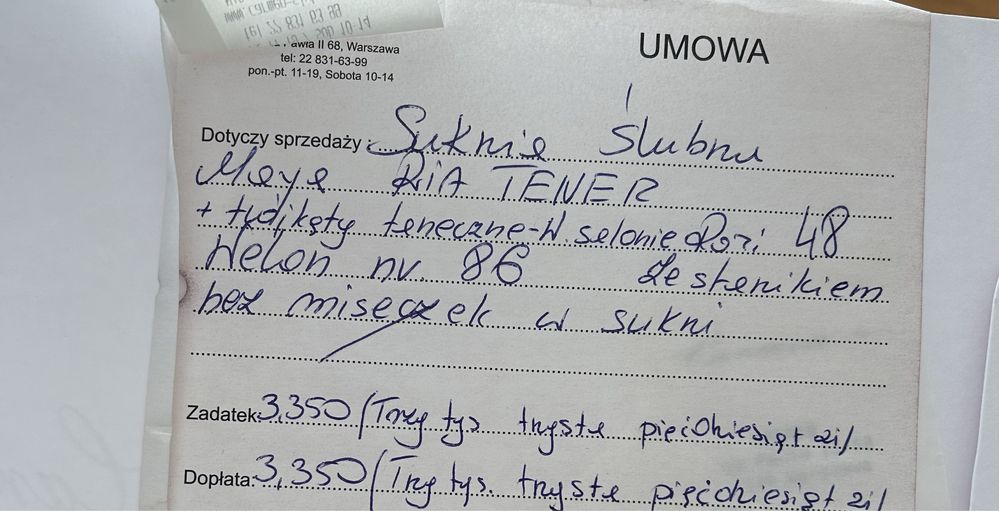 www.carmen-
tel 22 831 63 99
10-14
Pawła II 68, Warszawa
tel: 22 831-63-99
pon.-pt. 11-19, Sobota 10-14
UMOWA
Dotyczy sprzedaży: Suknie Ślubna
RIA TENER
+ taneczne - W. salonie Rozi 48
Welon nr. 86 Ze stanikiem
bez miseczek w sukni
Zadatek: 3.350 (Trzy tys trzysta pięćdziesiąt zł/
Dopłata: 3,350 (Trzy tys. trzysta pięćdziesiąt zł/